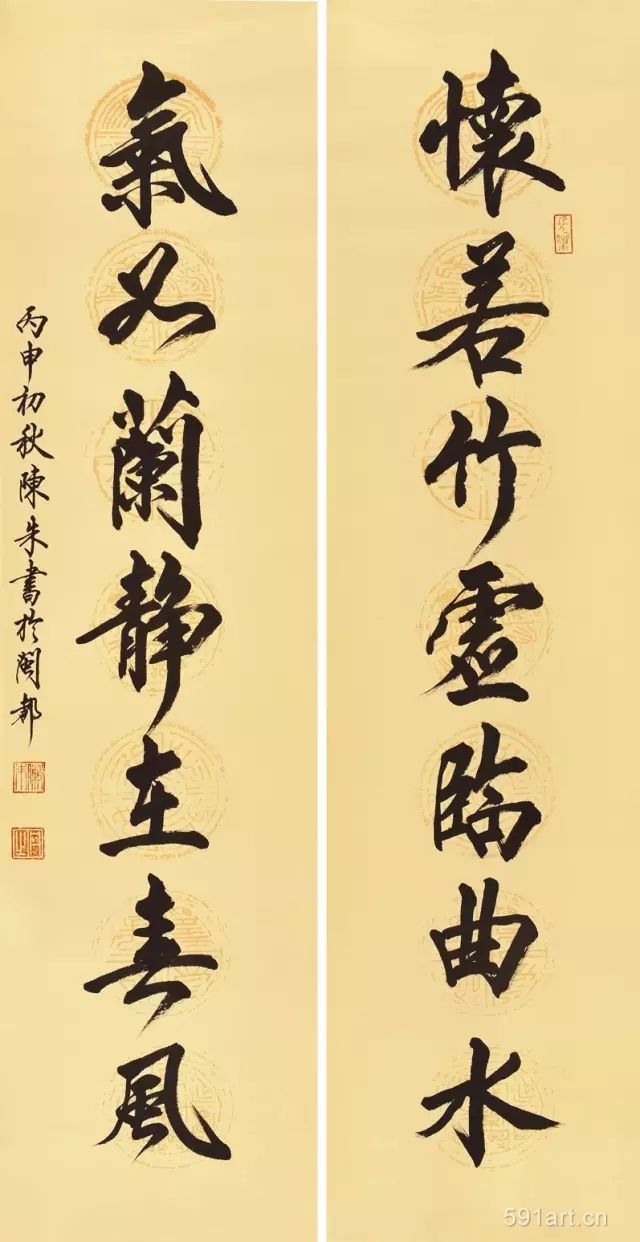 懷若竹虛臨曲水
氣如蘭静在春風
丙申初秋陳朱書於閩都
591art.cn